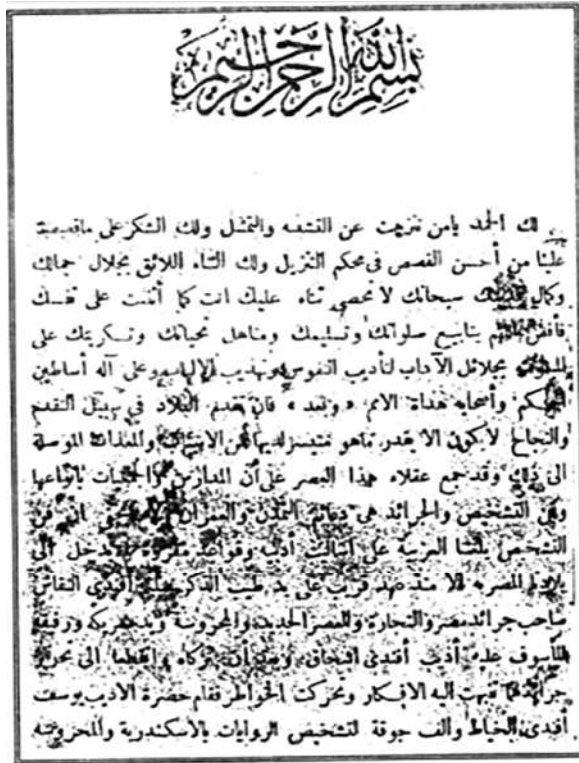 بسم الله الرحمن الرحيم
لك الحمد يا من تنزهت عن التشبه والتمثل ولك الشكر على ما قصصته
علينا من أحسن القصص في محكم التنزيل ولك الثناء اللائق بجلال جمالك
وكمال سبحانك لا نحصي ثناء عليك انت كما أثنيت على نفسك
فأفض اللهم ينابيع صلواتك وتسليمك ومناهل تحياتك وتكريمك على
بجلائل الآداب لتأديب النفوس وتهذيب الالباب وعلى آله أساطين
الحكم وأصحابه هداة الامم «وبعد» فان تقدم البلاد في سبيل التقدم
والنجاح لا يكون الا بقدر ما هو متيسر لديها من الاسباب والمعدات الموصلة
الى ذلك وقد جمع عقلاء هذا العصر على أن المدارس والجمعيات بانواعها
وفن التشخيص والجرائد هي دعائم التمدن والعمران فن
التشخيص بلغتنا العربية على اساليب أدبية وقواعد مقررة لم يدخل الى
بلادنا المصرية الا منذ عهد قريب على يد طيب الذكر سليم أفندي النقاش
صاحب جرائد مصر والتجارة والعصر الجديد والمحروسة ويد شريكه ورفيقه
المأسوف عليه أديب أفندي اسحاق وبعد أن تركاه وانقطعا الى تحرير
جرائدهما تنبهت اليه الافكار وتحركت الخواطر فقام حضرة الاديب يوسف
أفندي الخياط وألف جوقة لتشخيص الروايات بالاسكندرية والمحروسة